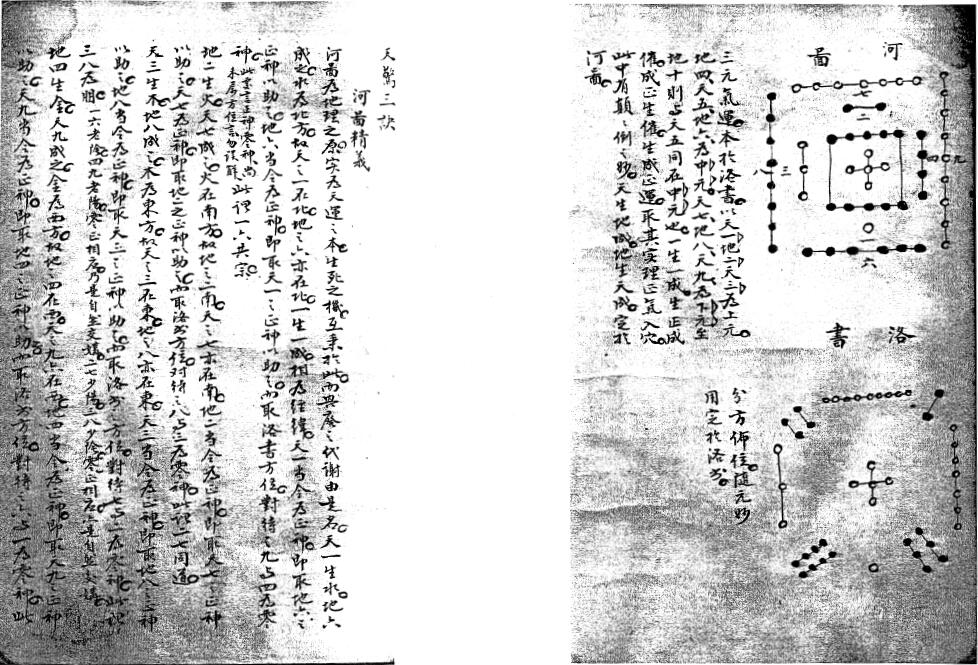 河圖
七
二
八
三
四
九
一
六
三元氣運本於洛書以天一地二天三為上元
地四天五地六為中元天七地八天九為下元至
地十則與天五同在中元也一生一成生正成
催成正生催生成正運取其實理正氣入穴
此中有顛之倒之妙天生地成地生天成定於
河圖
洛書
分方佈位隨元妙
用定於洛書
天驚三訣
河圖精義
河圖為地理之原實為天運之本生死之機互乘於此而興廢之代謝由是名天一生水地六
成之水為北方故天之一在北地之六亦在北一生一成相為經緯天一當令為正神即取地六之
正神以助之地六當令為正神即取天一之正神以助之而取洛書方位對待之九與四為零
神此業言正零神尚未屬方位言勿誤解此謂一六共宗
地二生火天七成之火在南方故地之二南天之七亦在南地二當令為正神即取天七之正神
以助之天七為正神即取地二之正神助之而取洛書方位對待之八與三為零神此謂二七同道
天三生木地八成之木為東方故天之三在東地之八亦在東天三當令為正神即取地八之正神
以助之地八當令為正神即取天三之正神以助之而取洛書方位對待七與二為零神此謂
三八為朋一六老陰四九老陽零正相反乃是自然交媾二七少陽三八少陰零正相反亦是自然交媾
地四生金天九成之金為西方故地之四在西天之九亦在西地四當令為正神即取天九之正神
以助之天九當令為正神即取地四之正神以助而取洛書方位對待之六與一為零神此